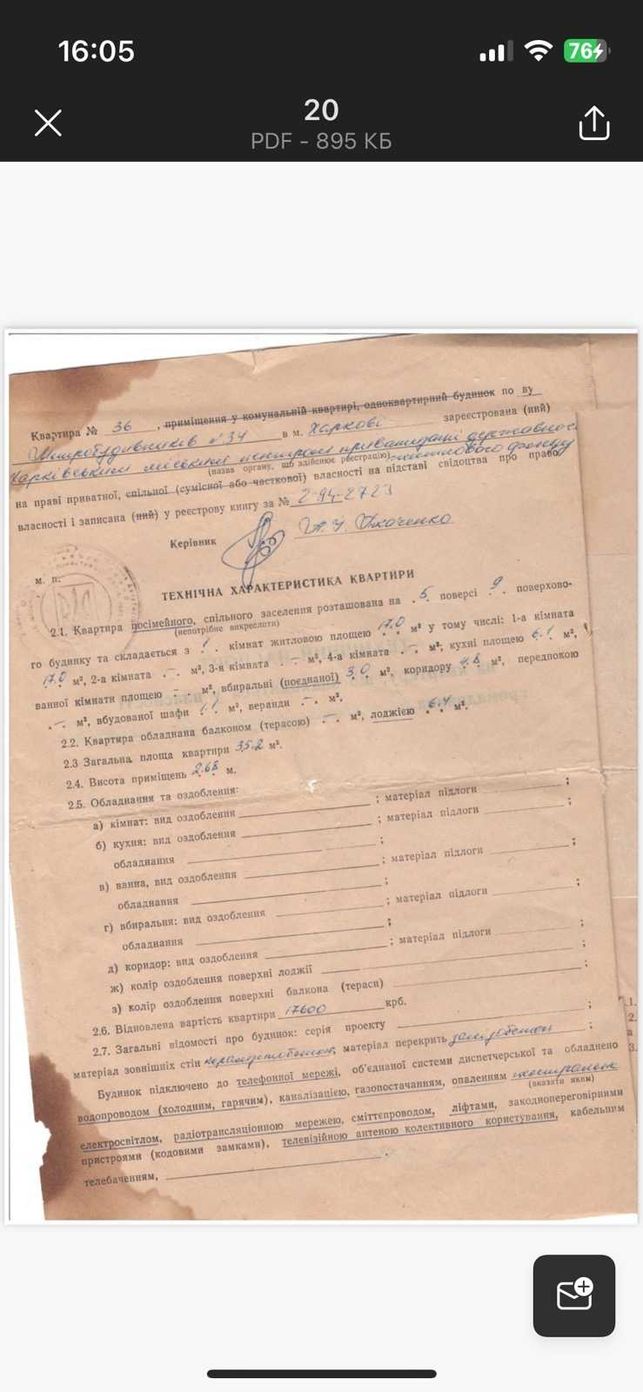 16:05
76
20
PDF – 895 КБ
Квартира № 36, приміщення у комунальній квартирі, одноквартирний будинок по ву
№ 34 в м. Харкові зареєстрована (ний)
Харківським міським центром приватизації державного
(назва органу, що здійснює реєстрацію) житлового фонду
на праві приватної, спільної (сумісної або часткової) власності на підставі свідоцтва про право
власності і записана (ний) у реєстрову книгу за № 2-94-2723
Керівник
м. п.
ТЕХНІЧНА ХАРАКТЕРИСТИКА КВАРТИРИ
2.1. Квартира посімейного, спільного заселення розташована на 5 поверсі 9 поверхово-
(непотрібне викреслити)
го будинку та складається з 1 кімнат житловою площею 17.0 м² у тому числі: 1-а кімната
17.0 м², 2-а кімната – м², 3-я кімната – м², 4-а кімната – м², кухні площею 6.1 м²,
ванної кімнати площею – м², вбиральні (поєднаної) 3.0 м², коридору м², передпокою
– м², вбудованої шафи м², веранди – м².
2.2. Квартира обладнана балконом (терасою) – м², лоджією 6.4 м².
2.3 Загальна площа квартири 35.2 м².
2.4. Висота приміщень м.
2.5. Обладнання та оздоблення:
а) кімнат: вид оздоблення ; матеріал підлоги ;
б) кухня: вид оздоблення ; матеріал підлоги ;
обладнання ;
в) ванна, вид оздоблення ; матеріал підлоги ;
обладнання ;
г) вбиральня: вид оздоблення ; матеріал підлоги ;
обладнання ;
д) коридор: вид оздоблення ; матеріал підлоги ;
ж) колір оздоблення поверхні лоджії ;
з) колір оздоблення поверхні балкона (тераси) ;
2.6. Відновлена вартість квартири 17600 крб.
2.7. Загальні відомості про будинок: серія проекту ;
матеріал зовнішніх стін керамзитобетон, матеріал перекрить залізобетон ;
Будинок підключено до телефонної мережі, об'єднаної системи диспетчерської та обладнано
водопроводом (холодним, гарячим), каналізацією, газопостачанням, опаленням
(вказати яким)
електросвітлом, радіотрансляційною мережею, сміттєпроводом, ліфтами, закоднопереговірними
пристроями (кодовими замками), телевізійною антеною колективного користування, кабельним
телебаченням,